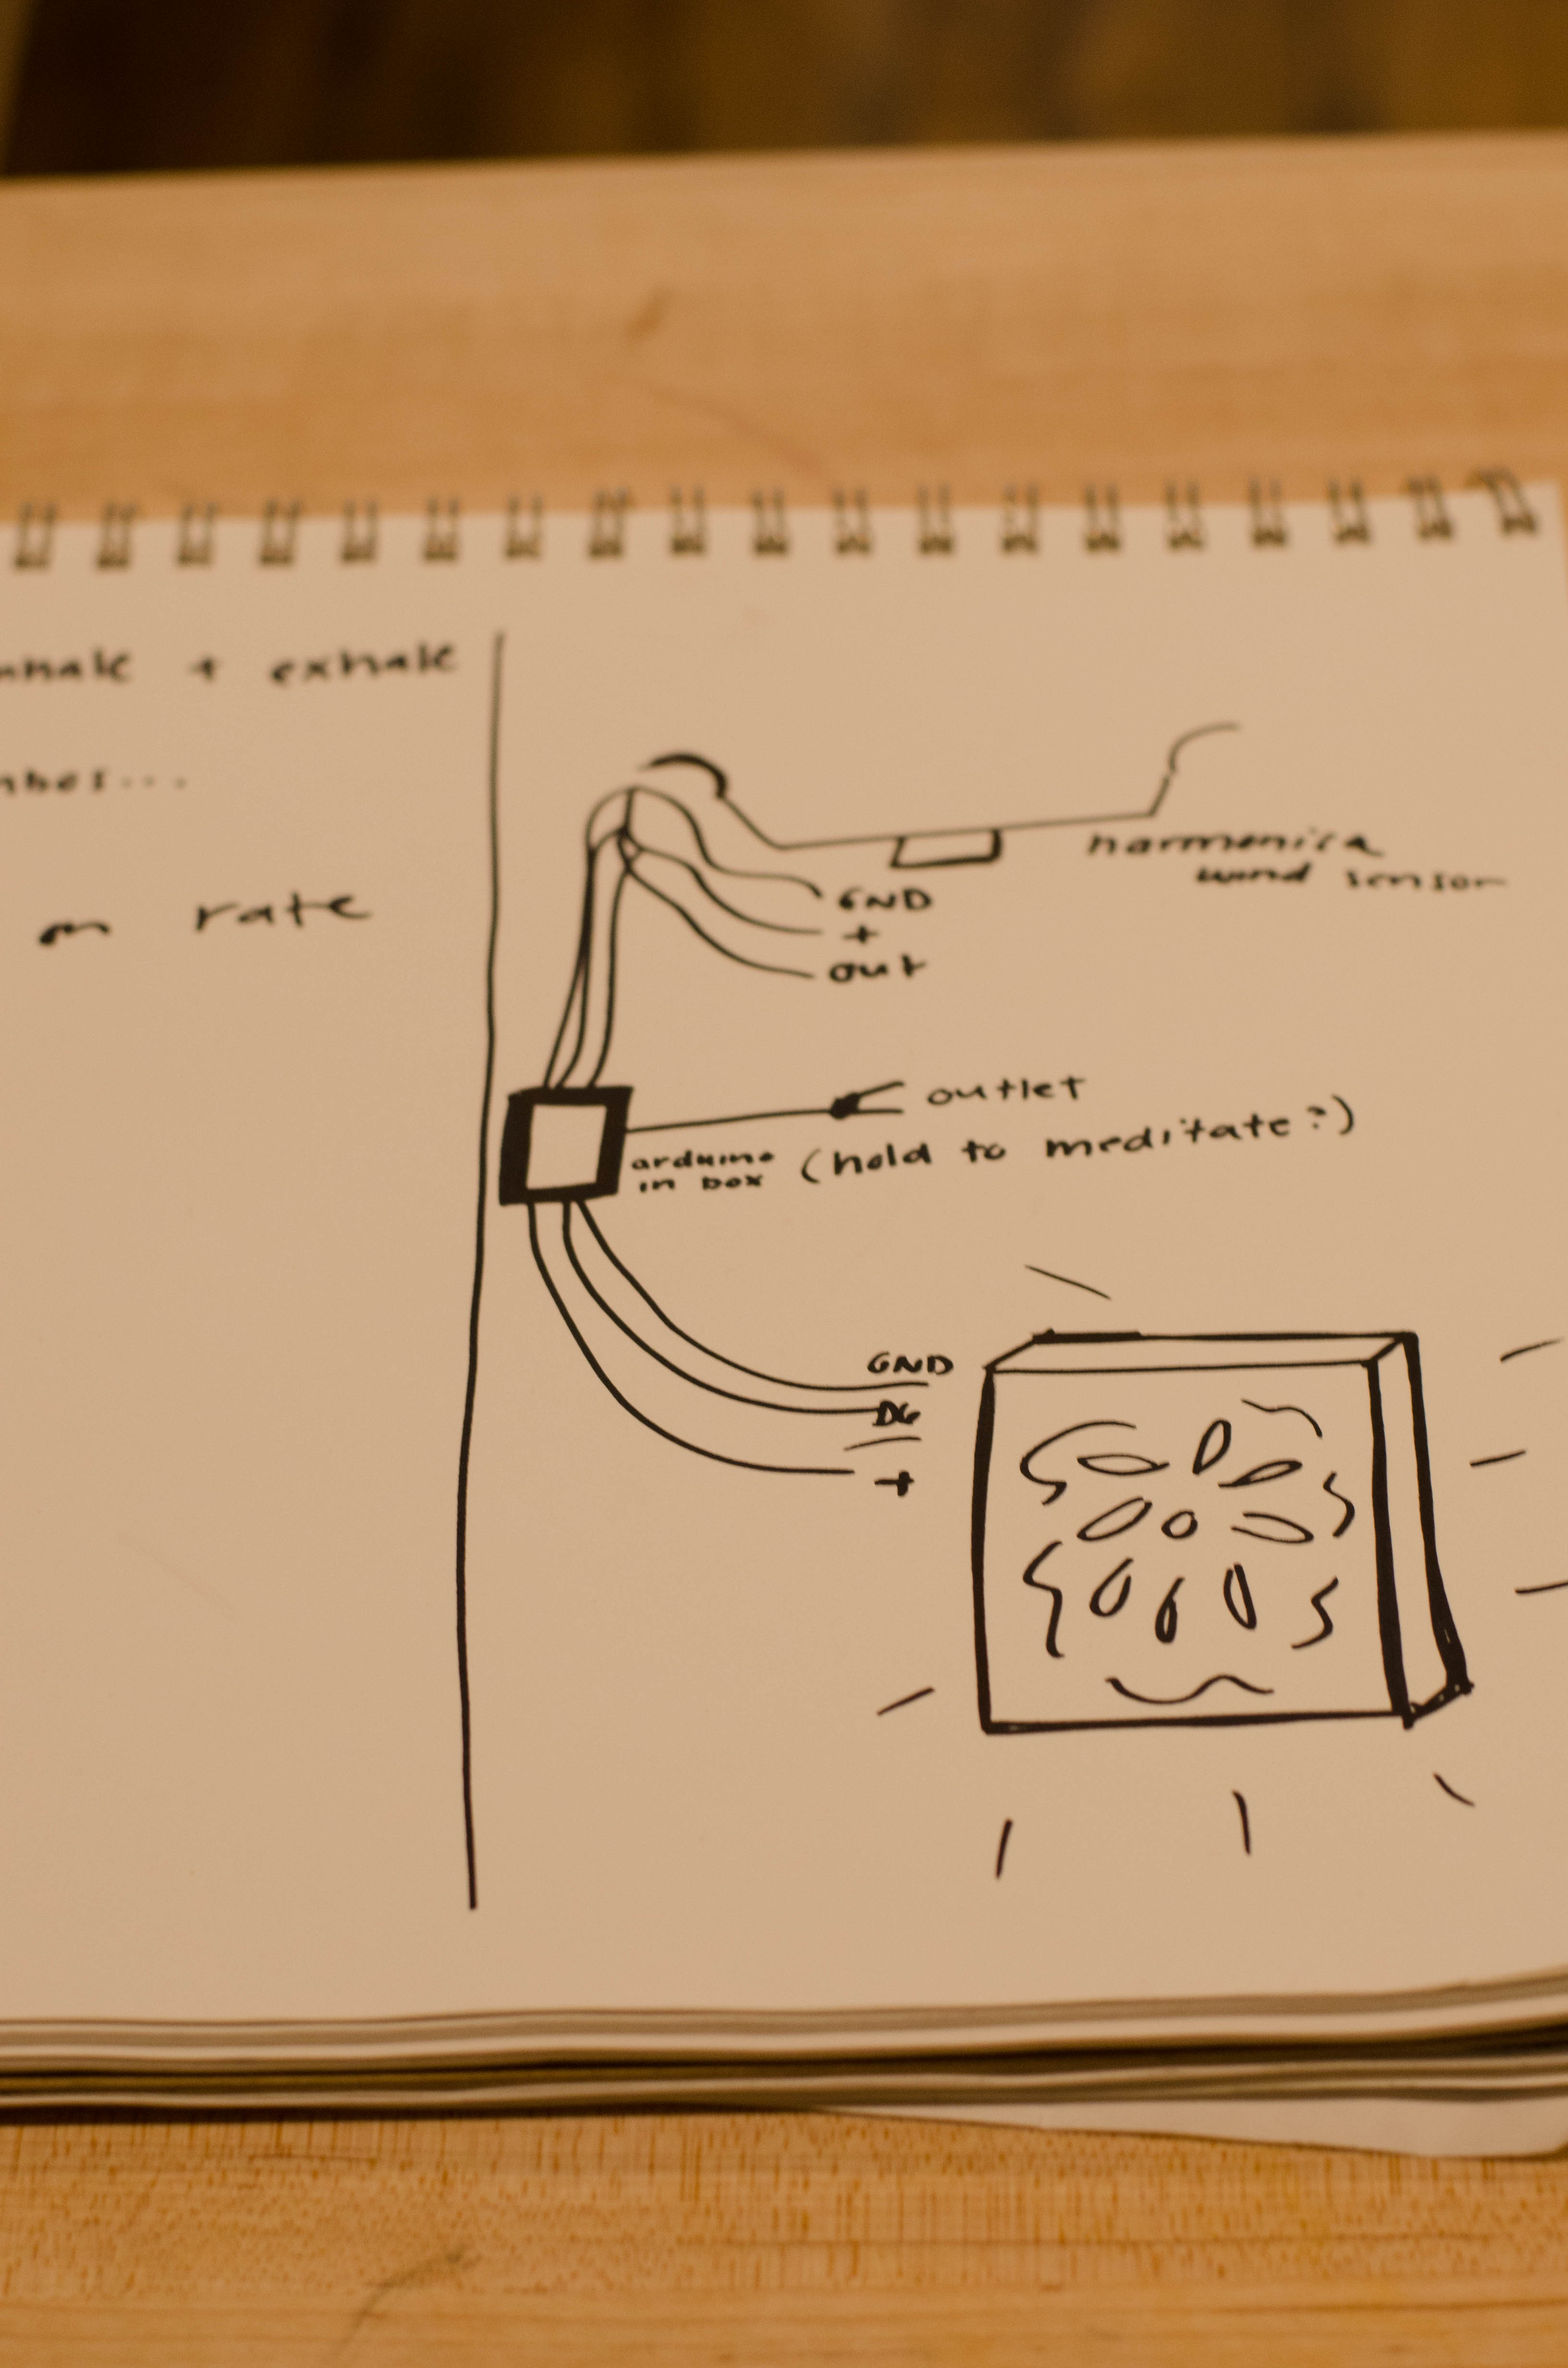 + exhale
on rate
harmonica
wind sensor
GND
+
out
outlet
arduino
in box
(hold to meditate?)
GND
D6
+